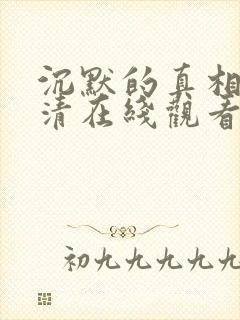 沉默的真相
清在綫觀看
初九九九九九